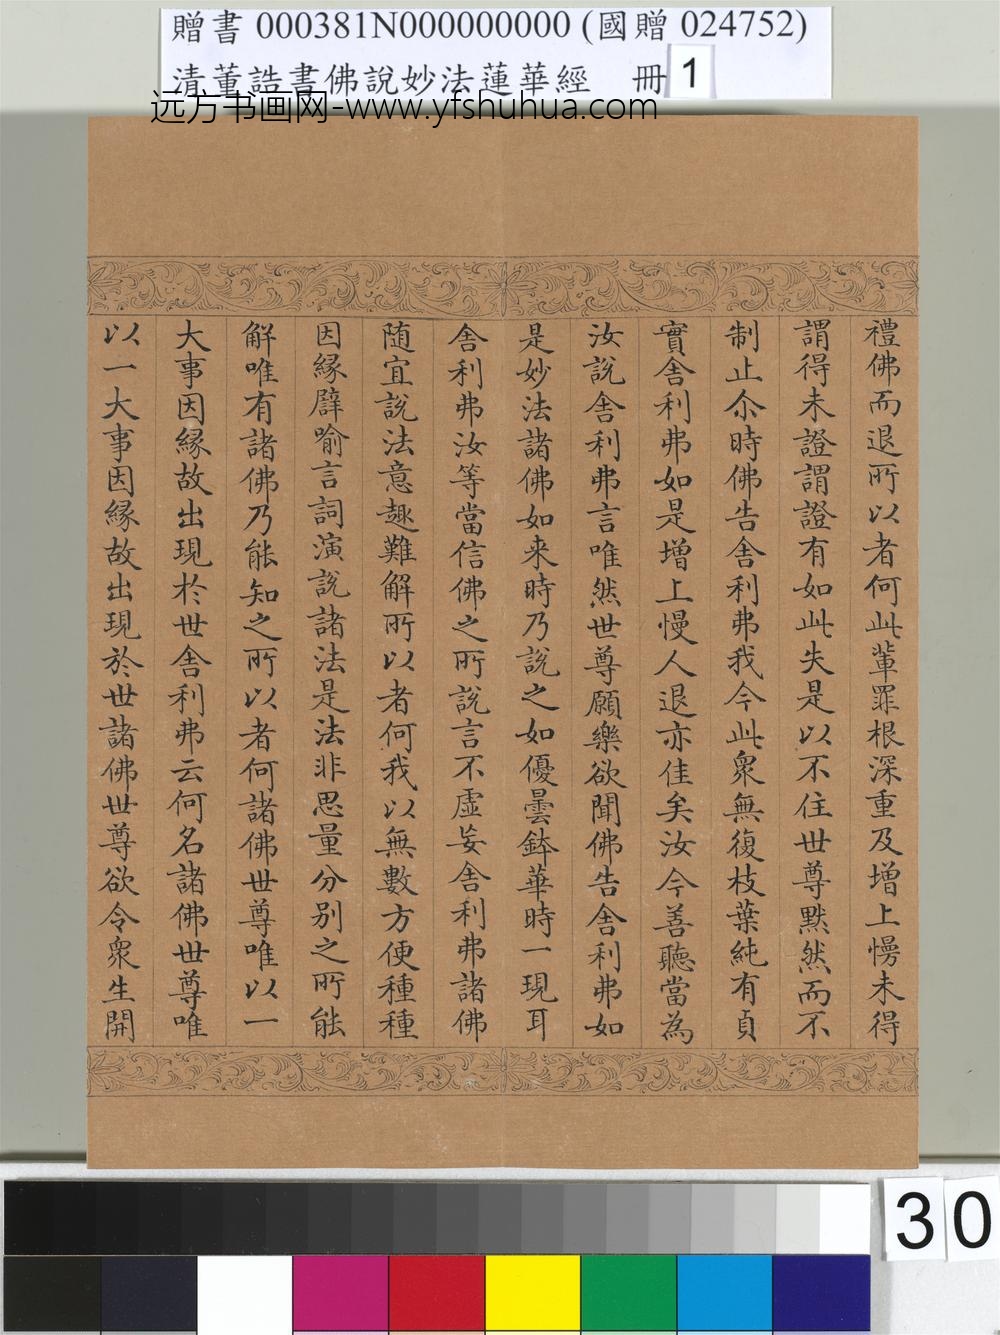 贈書 000381N000000000 (國贈 024752)
清董誥書佛說妙法蓮華經 冊 1
远方书画网-www.yfshuhua.com
禮佛而退所以者何此輩罪根深重及增上慢未得
謂得未證謂證有如此失是以不住世尊默然而不
制止尒時佛告舍利弗我今此衆無復枝葉純有貞
實舍利弗如是增上慢人退亦佳矣汝今善聽當為
汝說舍利弗言唯然世尊願樂欲聞佛告舍利弗如
是妙法諸佛如来時乃說之如優曇鉢華時一現耳
舍利弗汝等當信佛之所說言不虛妄舍利弗諸佛
随宜說法意趣難解所以者何我以無數方便種種
因緣辟喻言詞演說諸法是法非思量分别之所能
解唯有諸佛乃能知之所以者何諸佛世尊唯以一
大事因緣故出現於世舍利弗云何名諸佛世尊唯
以一大事因緣故出現於世諸佛世尊欲令衆生開
30